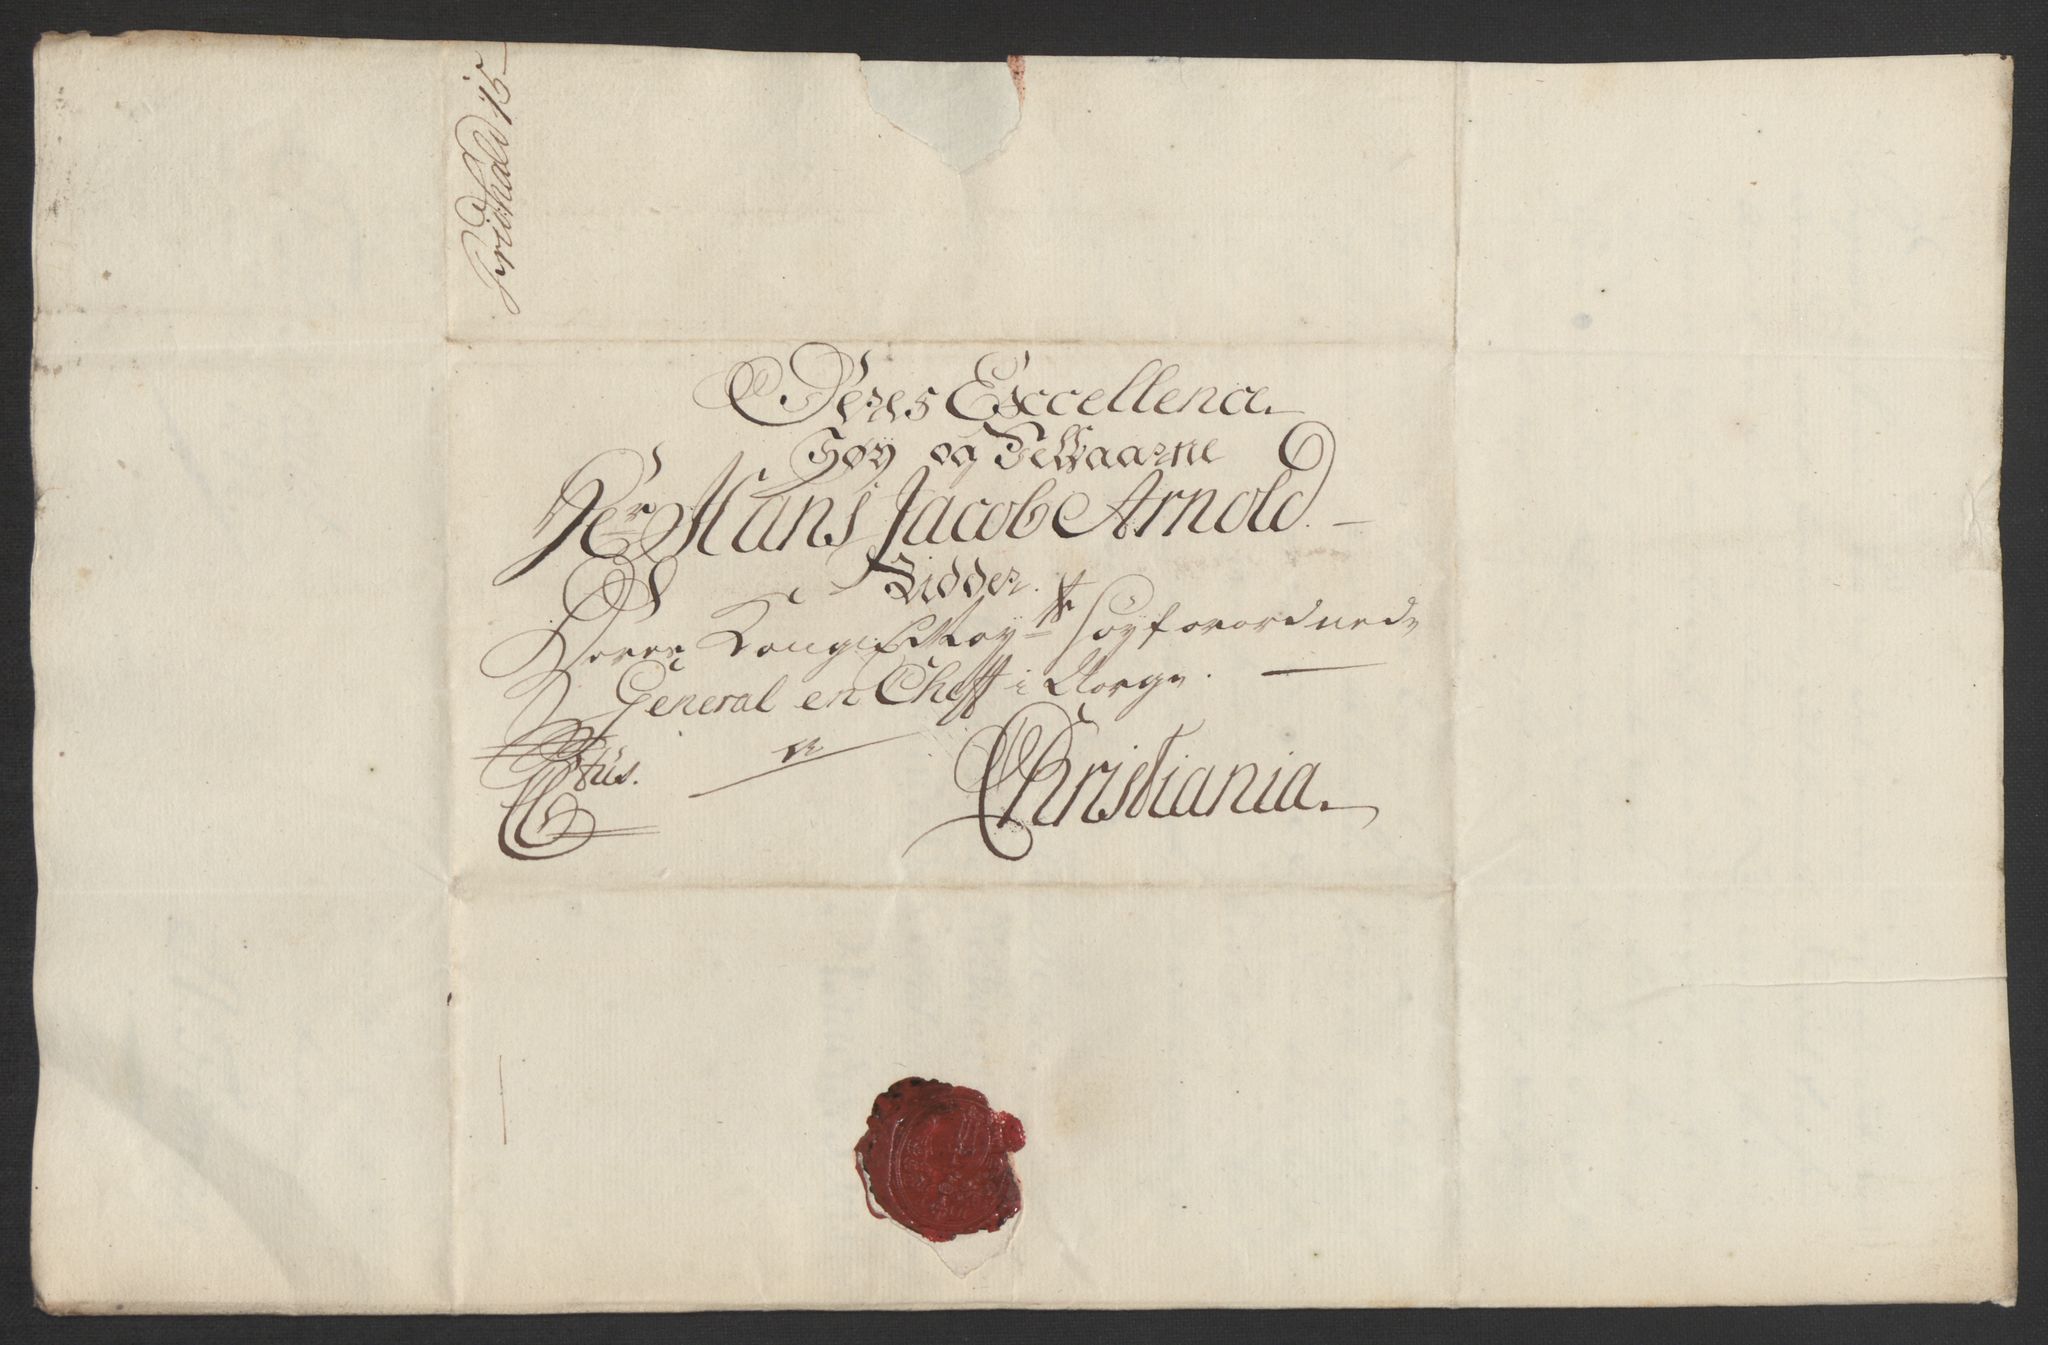 Fridhald 15
Deres Excellence
Høy og Velbaarne
Herr Hans Jacob Arnold
Ridder.
Deres Kongl May:tts høyforordnede
General en Cheff i Norge.
a
Christiania.